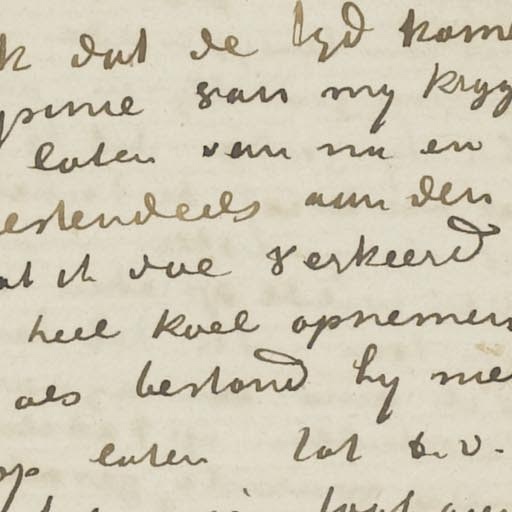 k dat de tyd kome
opinie van my kryg
laten van nu en
estendeels aan den
at ik doe verkeerd
heel koel opnemen
als bestond hy me
op laten tot b.v.